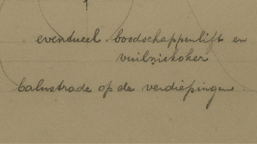 eventueel boodschappenlift en
vuilniskoker
balustrade op de verdiepingen